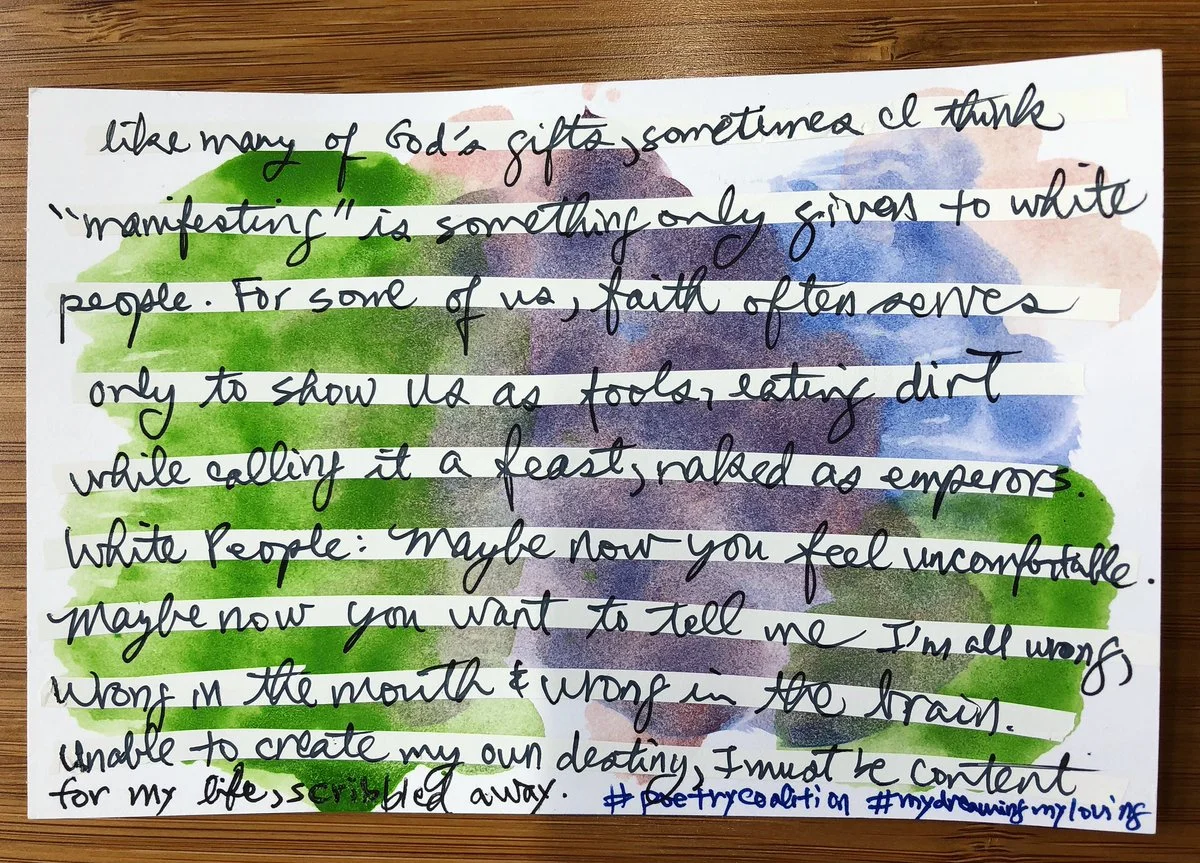 like many of God's gifts, sometimes I think
"manifesting" is something only given to white
people. For some of us, faith often serves
only to show us as fools, eating dirt
while calling it a feast, naked as emperors.
White People: Maybe now you feel uncomfortable.
Maybe now you want to tell me I'm all wrong,
wrong in the mouth & wrong in the brain.
Unable to create my own destiny, I must be content
for my life, scribbled away. #poetrycoalition #mydreamingmyloving